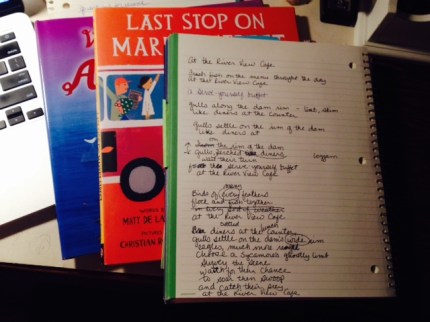 LAST STOP ON
MARK
MATT DE LA
CHRISTIAN R
At the River View Cafe
fresh fish on the menu throught the day
at the River View Cafe
a serve yourself buffet
gulls along the dam rim
like diners at the counter
Gulls settle on the rim of the dam
like diners at
on
the rim of the dam
Gulls perched like diners
wait their turn
for the serve yourself buffet
at the River View Cafe
Birds of every feathers
flock and fish together
in every kind of weather
at the River View Cafe
diners at the counter
gulls settle on the dam's wide rim
eagles, much more
choose a Sycamore's ghostly limb
survey the scene
watch for their chance
to soar then swoop
and catch their prey
at the River View Cafe